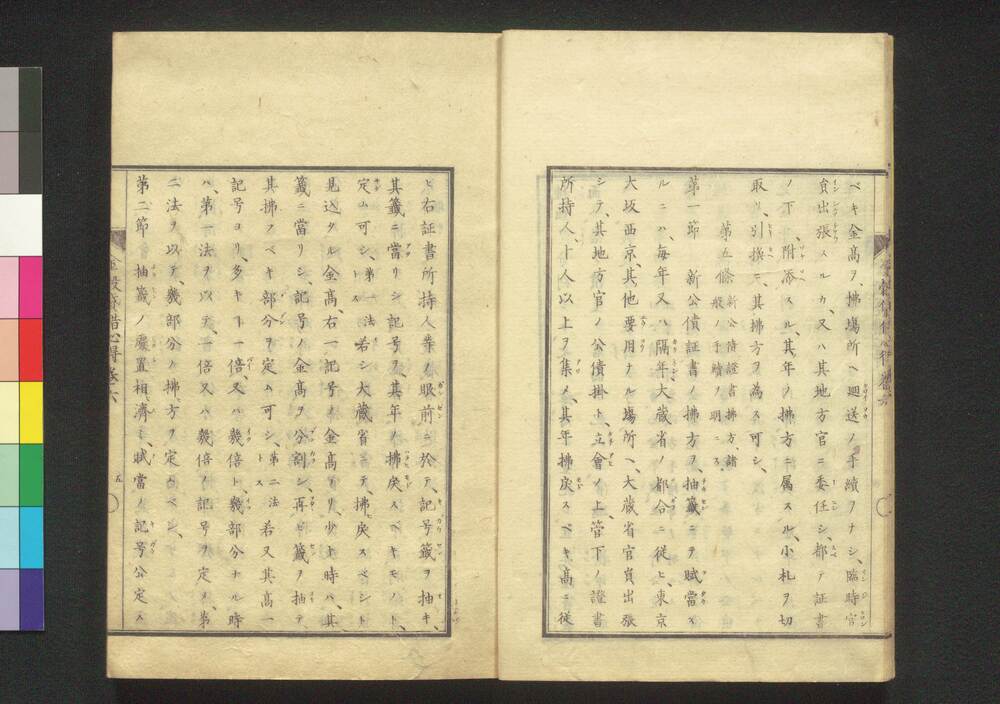 ベキ金高ヲ、拂塲所ヘ廻送ノ手續ヲナシ、臨時官
員出張スルカ、又ハ其地方官ニ委任シ、都テ証書
ノ下、附添スル、其年ノ拂方ニ属スル、小札ヲ切
取リ、引換ニ、其拂方ヲ為ス可シ、
第五條 新公債證書拂方、諸般ノ手續ノ明ニス
第一節 新公債証書ノ拂方ヲ、抽籤ニテ賦當ス
ルニハ、毎年又ハ隔年大蔵省ノ都合ニ従ヒ、東京
大坂西京、其他要用ナル塲所ヘ、大蔵省官員出張
シテ、其地方官ノ公債掛ト、立會ノ上、管下ノ證書
所持人、十人以上ヲ集メ、其年拂戻スベキ高ニ従
ヒ右証書所持人等ノ眼前ニ於テ、記号籤ヲ抽キ、
其籤ニ當リシ記号ヲ、其年ノ拂戻スベキモノト、
定ム可シ、第一法トス若シ大蔵省ニテ、拂戻スベシト
見込タル金高、右一記号ノ金高ヨリ、少キ時ハ、其
籤ニ當リシ、記号ノ金高ヲ分割シ、再ビ籤ヲ抽テ、
其拂フベキ部分ヲ定ム可シ、第二法トス若又其高一
記号ヨリ、多キヿ一倍、又ハ幾倍ト、幾部分ナル時
ハ、第一法ヲ以テ、一倍又ハ幾倍ノ記号ヲ定メ、第
二法ヲ以テ、幾部分ノ拂方ヲ定ムベシ、
第二節 抽籤ノ處置相濟ミ、賦當ノ記号公定ス
金穀貸借心得 巻六
五